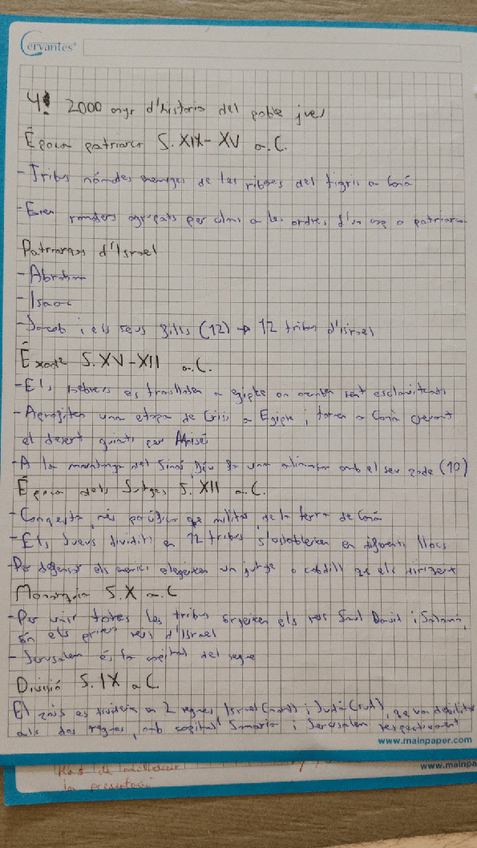 Cervantes
4. 2000 anys d'història del poble jueu
Època patriarca S. XIX-XV a.C.
- Tribus nómades de les riberes del tigris a Canà
- Eren ramaders agrupats per clans a les ordres d'un cap o patriarca
Patriarcas d'Israel
- Abraham
- Isaac
- Jacob i els seus fills (12) → 12 tribus d'Israel
Éxode S. XV-XII a.C.
- Els hebreus es traslladen a egipte on acaben sent esclavitzats
- Aprofiten una etapa de Crisi a Egipte i tornen a Canà creuant
el desert guiats per Moisés
- A la montanya del Sinaí Déu fa una aliança amb el seu poble (10)
Época dels Jutges S. XII a.C.
- Conquesta, més pacífica que militar, de la terra de Canà
- Els Jueus dividits en 12 tribus s'estableixen en diferents llocs
Per defensar els elegeixen un jutge o cabdill que els dirigeix
Monarquia S. X a.C
- Per unir totes les tribus sorgeixen els reis Saul David i Salomó,
són els primers reis d'Israel
- Jerusalem és la capital del regne
Divisió S. IX a C.
El país es divideix en 2 regnes, Israel (nord) i Judá (sud), que va debilitar
als dos regnes, amb capital Samaria i Jerusalem respectivament
www.mainpaper.com
www.mainpap
la presentació